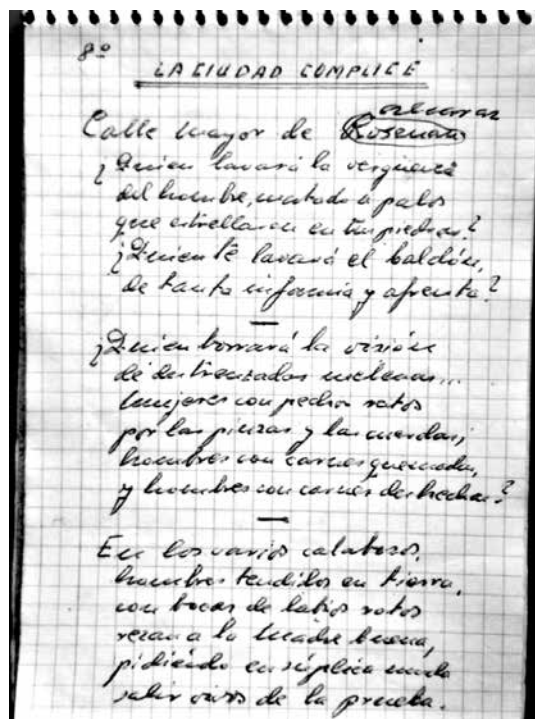 8º
LA CIUDAD COMPLICE
Calle mayor de Rosenau
¿Quien lavará la vergüenza
del hombre, matado a palos
que estrellaron en tus piedras?
¿Quien te lavará el baldón,
de tanta infamia y afrenta?
¿Quien borrará la visión
de destrenzadas melenas...
mujeres con pechos rotos
por las pinzas y las cuerdas;
hombres con carnes quemadas,
y hombres con carnes deshechas?
En los varios calabozos,
hombres tendidos en tierra,
con bocas de labios rotos
rezan a la madre buena,
pidiendo en súplica muda
salir vivos de la prueba.